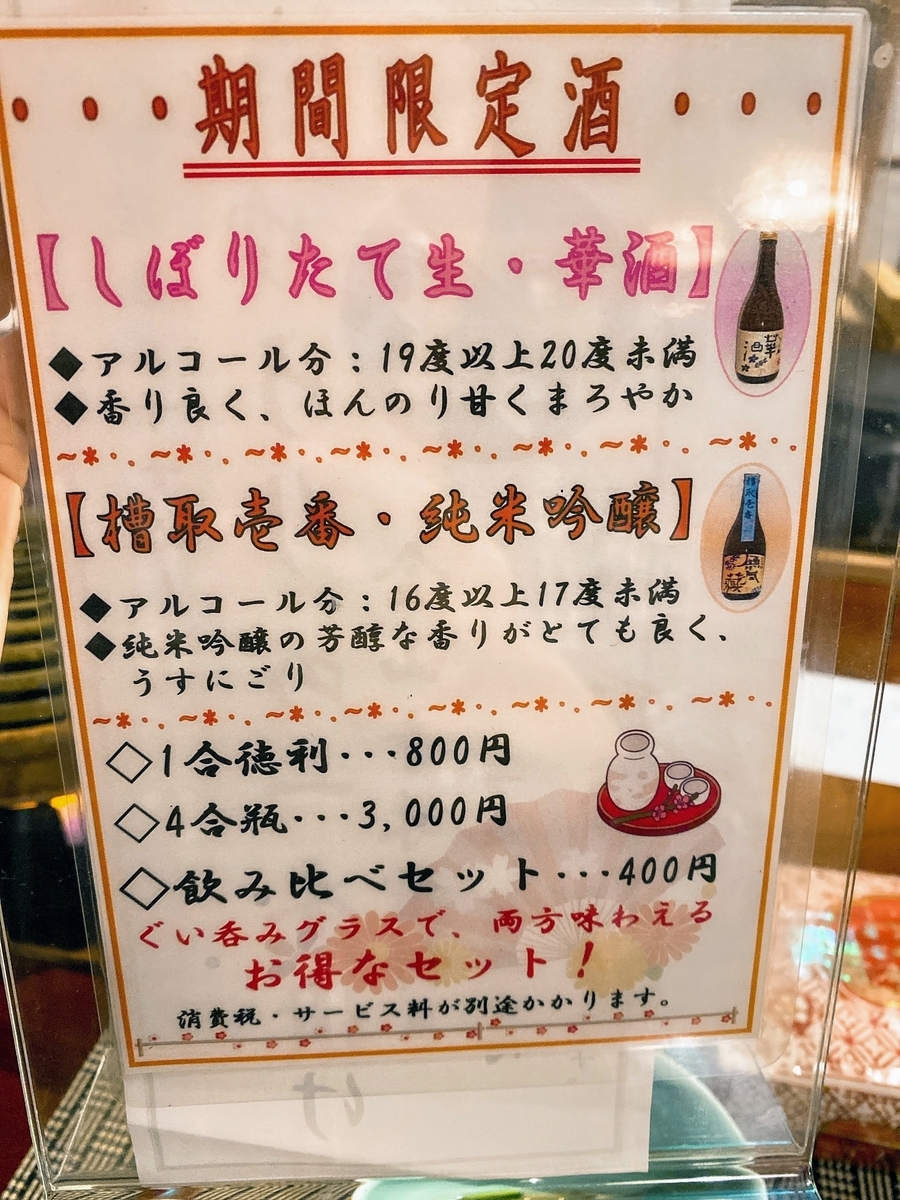 ・・・期間限定酒・・・
【しぼりたて生・華酒】
華酒
◆アルコール分：19度以上20度未満
◆香り良く、ほんのり甘くまろやか
～*・。～*・。～*・。～*・。～*・。～*・。～*・。～*・。
【槽取壱番・純米吟醸】
槽取壱番
◆アルコール分：16度以上17度未満
◆純米吟醸の芳醇な香りがとても良く、
うすにごり
～*・。～*・。～*・。～*・。～*・。～*・。～*・。～*・。
◇1合徳利・・・800円
◇4合瓶・・・3,000円
◇飲み比べセット・・・400円
ぐい呑みグラスで、両方味わえる
お得なセット！
消費税・サービス料が別途かかります。